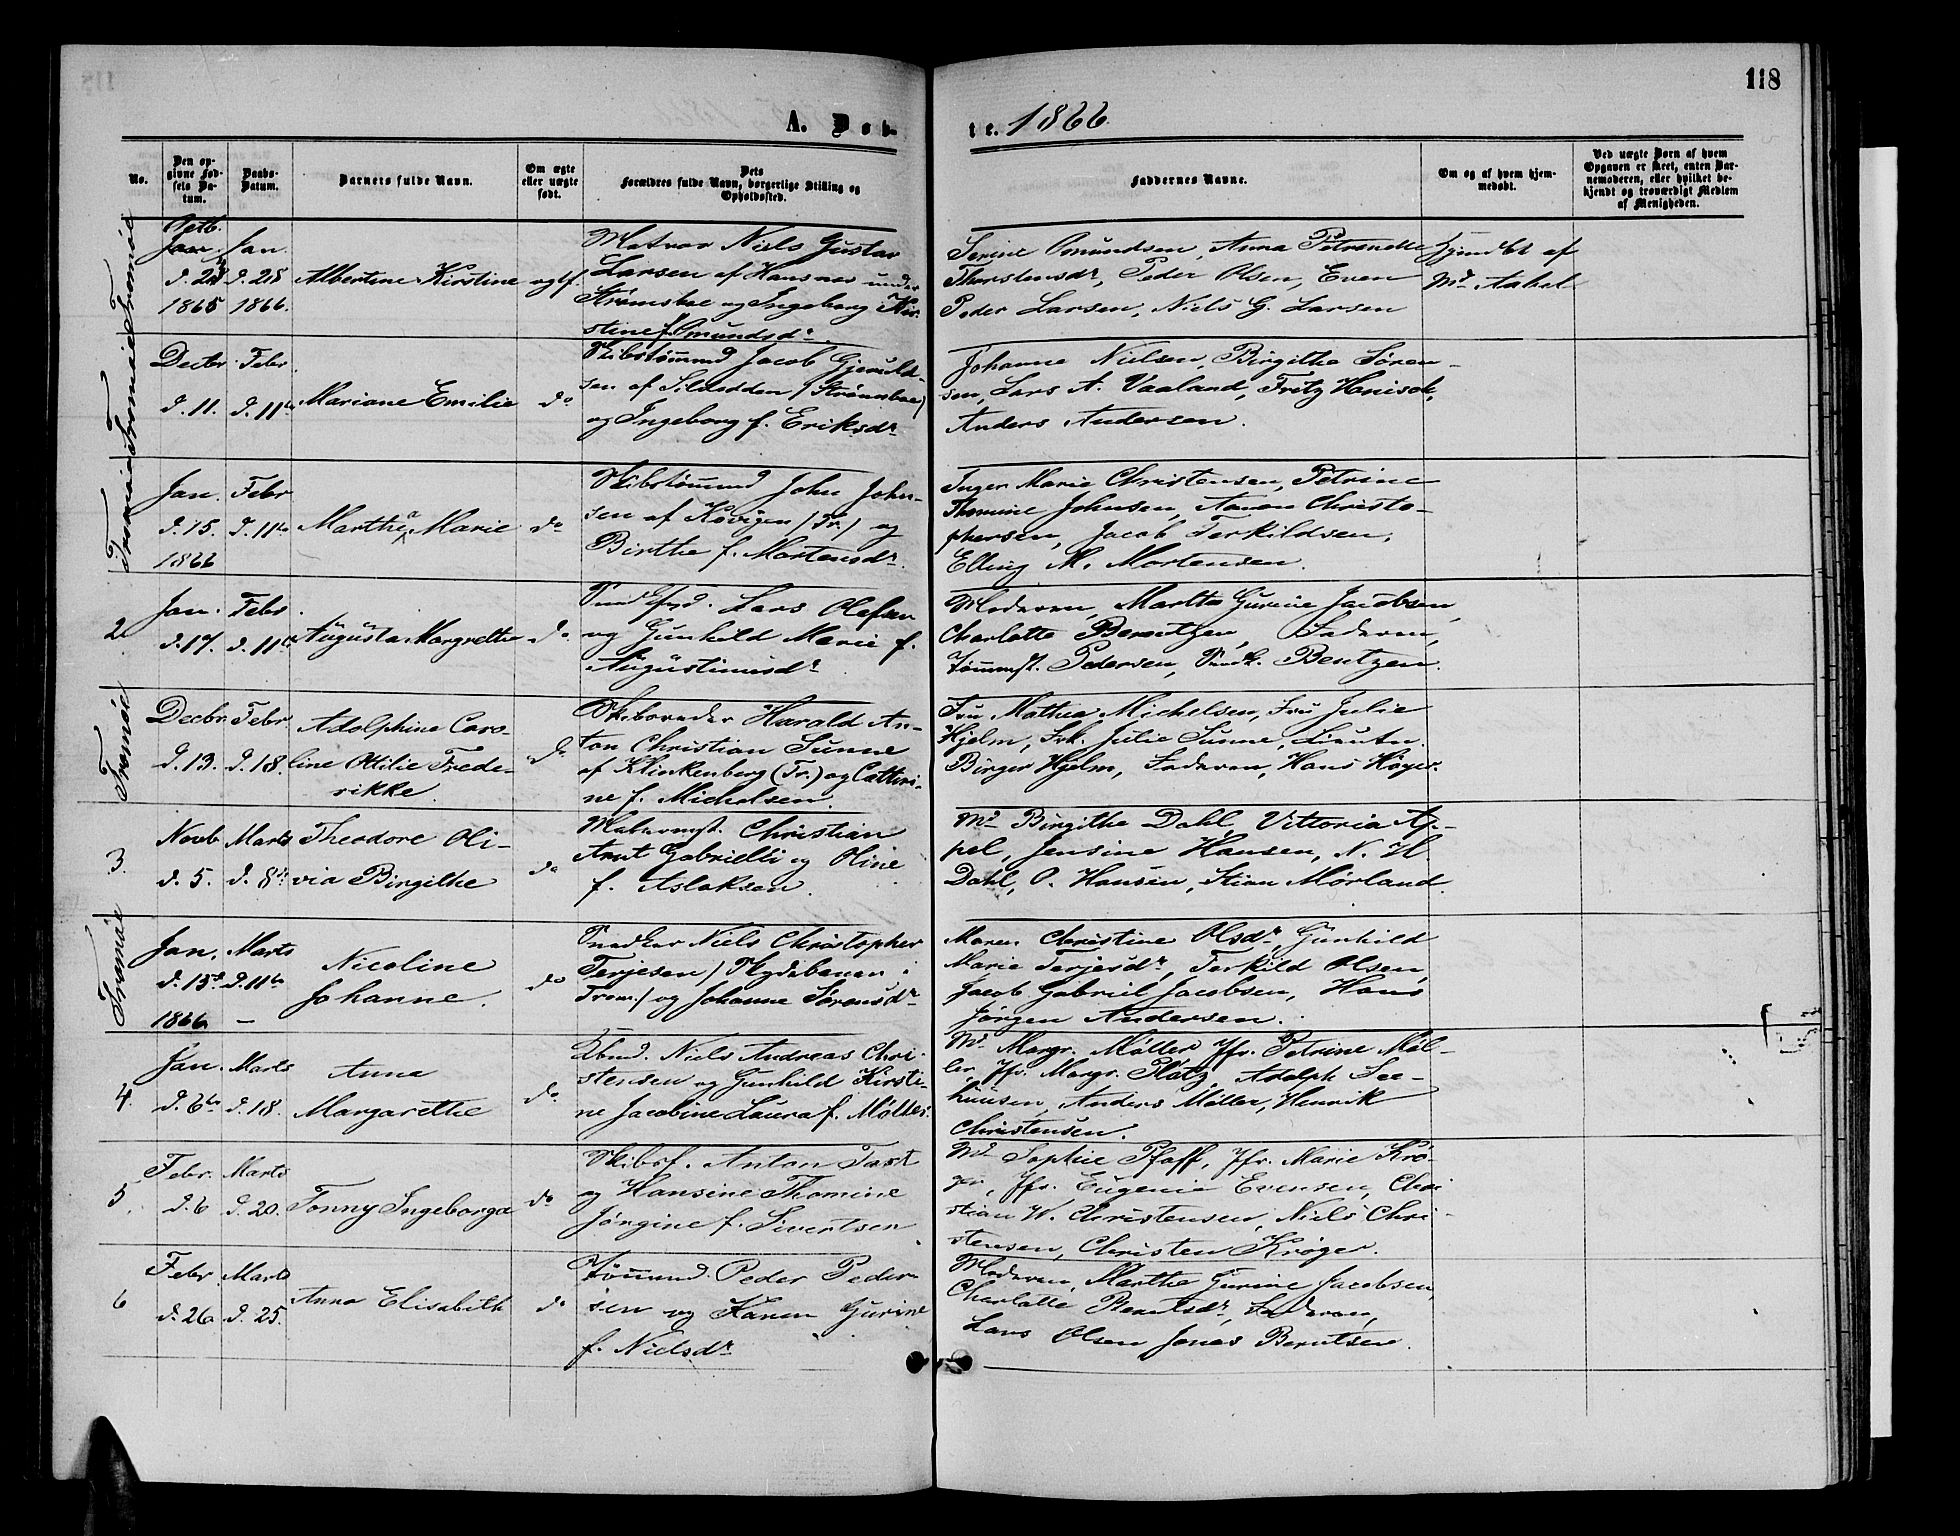 118
A. Døb-
te. 1866
No.
Den opgivne Fødsels Datum.
Daabs-Datum.
Barnets fulde Navn.
Om ægte eller uægte født.
Dets Forældres fulde Navn, borgerlige Stilling og Opholdssted.
Faddernes Navne.
Om og af hvem hjemmedøbt.
Ved uægte Børn af hvem Opgaven er skeet, enten Barnemoderen, eller hvilket bekjendt og troværdigt Medlem af Menigheden.
Tromøe
Jan.
d. 28
1865
Jan.
d. 28
1866.
Albertine Kirstine
Matros Niels Gustav
Larsen af Hansnes under
Strømsboe og Ingeborg Kir-
stine f. Omundsdr
Serine Omundsen, Anna Petrandse
Thorstensdr, Peder Olsen, Even
Peder Larsen, Niels G. Larsen
Hjemdbt af
Md Aabel
Tromøe
Decbr
d. 11.
Febr.
d. 11te
Mariane Emilie
do
Skibstømmd Jacob Gjeruld-
sen af (Strømsboe)
og Ingeborg f. Eriksdr
Johanne Nielsen, Birgithe Søren-
sen, Lars A. Vaaland, Fritz Henisch,
Anders Andersen.
Tromøe
Jan.
d. 15.
1866
Febr
d. 11te
Marthea Marie
do
Skibstømmd John John-
sen af Kovigen (Tr.) og
Birthe f. Mortensdr.
Inger Marie Christensen, Petrine
Thomine Johnsen, Aanon Christo-
phersen, Jacob Terkildsen,
Elling M. Mortensen.
2
Jan.
d. 17.
Febr.
d. 11te
Augusta Margrethe
do
Lars Olafsen
og Gunhild Marie f.
Augustinusdr
Moderen, Marthe Gurine Jacobsen,
Charlotte Berentzen, Faderen,
Tømmst. Pedersen, Snedk. Bentzen.
Tromøe
Decbr
d. 13.
Febr
d. 18.
Adolphine Caro-
line Ottilie Frede-
rikke.
do
Skibsreder Harald An-
ton Christian Sunne
af Klinkenberg (Tr.) og Cathri-
ne f. Michelsen.
Fru Mathea Michelsen, Fru Julie
Hjelm, Frk. Julie Sunne, Lieutn.
Birger Hjelm, Faderen, Hans Høyer.
3.
Novb
d. 5.
Marts
d. 8de
Theodore Oli-
via Birgithe
do
Malermst. Christian
Arnt Gabrielli og Oline
f. Aslaksen.
Md Birgithe Dahl, Vittoria Ap-
pel, Jensine Hansen, N. H.
Dahl, O. Hansen, Stian Mørland.
Tromøe
Jan.
d. 13de
1866
Marts
d. 11te
–
Nicoline
Johanne.
do
Snedker Niels Christopher
Terjesen (Skydebanen i
Trom.) og Johanne Sørensdr
Maren Christine Olsdr, Gunhild
Marie Terjesdr, Terkild Olsen,
Jacob Gabriel Jacobsen, Hans
Jørgen Andersen.
4.
Jan.
d. 6te
Marts
d. 18.
Anne
Margarethe
do
Niels Andreas Chri-
stensen og Gunhild Kirsti-
ne Jacobine Laura f. Møller.
Md Margr. Møller, Jfr. Petrine Møl-
ler, Jfr. Margr. Plátz, Adolph See-
huusen, Anders Møller, Henrik
Christensen.
5.
Febr.
d. 6
Marts
d. 20.
Fonny Ingeborga
do
Skibsf. Anton Tast
og Hansine Thomine
Jørgine f. Sivertsen
Md Sophie Pfaff, Jfr. Marie Krø-
ger, Jfr. Eugenie Evensen, Chri-
stian W. Christensen, Niels Chri-
stensen, Christen Krøger.
6
Febr
d. 26
Marts
d. 25.
Anna Elisabeth
do
Tømmd. Peder Peder-
sen og Karen Gurine
f. Nielsdr
Moderen, Marthe Gurine Jacobsen,
Charlotte Berntsdr, Faderen,
Lars Olsen Jonas Berntsen.